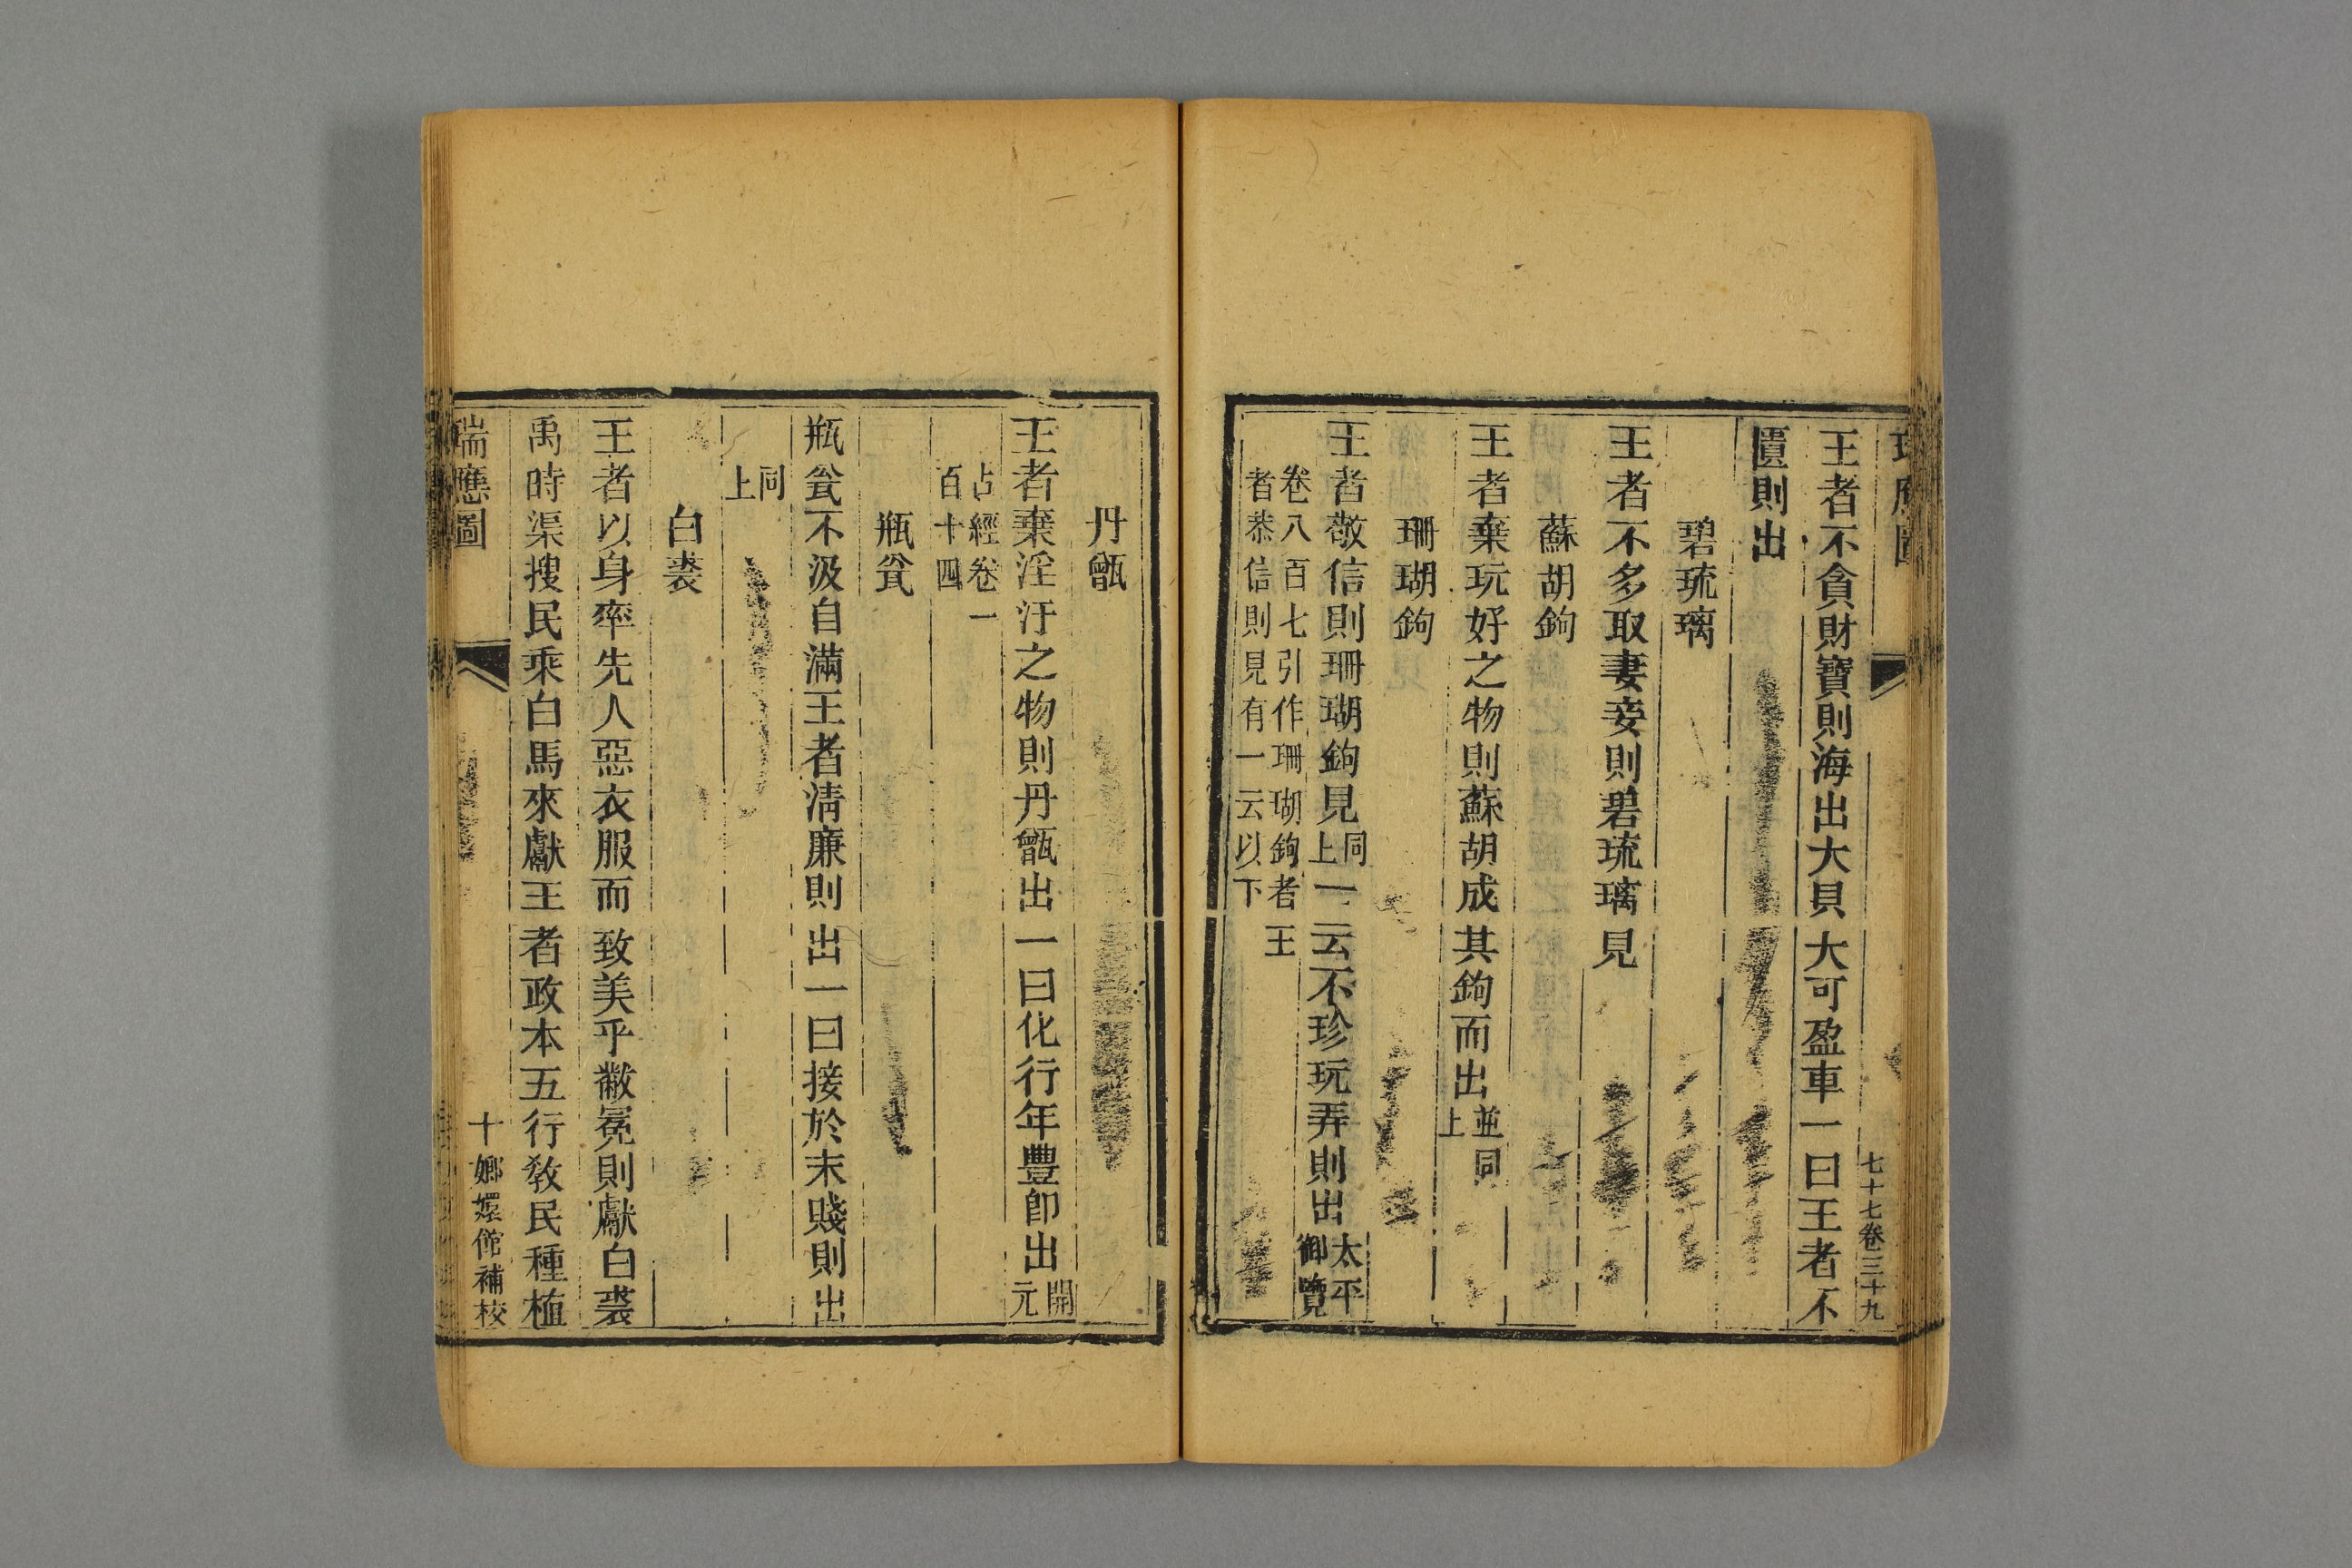 瑞應圖
七十七卷三十九
王者不貪財寶則海出大貝大可盈車一曰王者不
匱則出
碧琉璃
王者不多取妻妾則碧琉璃見
蘇胡鉤
王者棄玩好之物則蘇胡成其鉤而出並同上
珊瑚鉤
王者敬信則珊瑚鉤見同上一云不珍玩弄則出太平御覽
卷八百七引作珊瑚鉤者王
者恭信則見有一云以下
丹甑
王者棄淫汙之物則丹甑出一曰化行年豐卽出開元
占經卷一
百十四
瓶甕
瓶甕不汲自滿王者淸廉則出一曰接於末賤則出
同上
白裘
王者以身率先人惡衣服而致美乎黻冕則獻白裘
禹時渠搜民乘白馬來獻王者政本五行敎民種植
瑞應圖
十
嫏嬛館補校